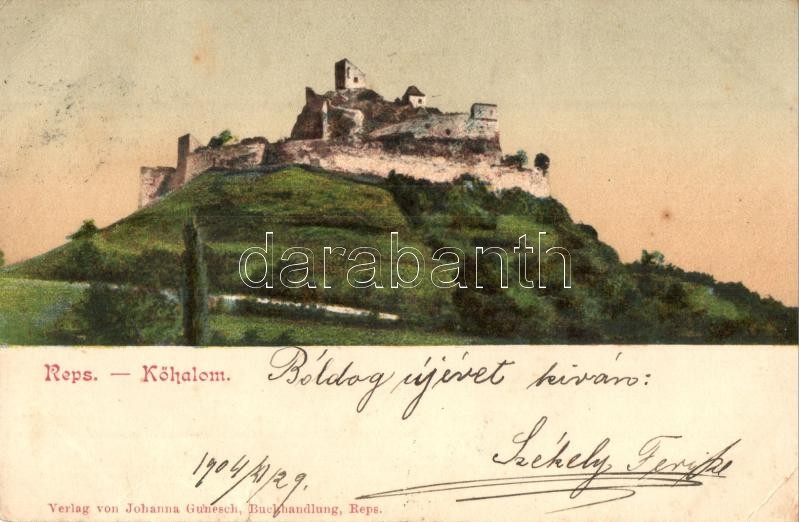 darabanth
Reps. — Kőhalom.
Bóldog újévet kiván:
Székely Ferike
1904/XI/29.
Verlag von Johanna Gunesch, Buchhandlung, Reps.